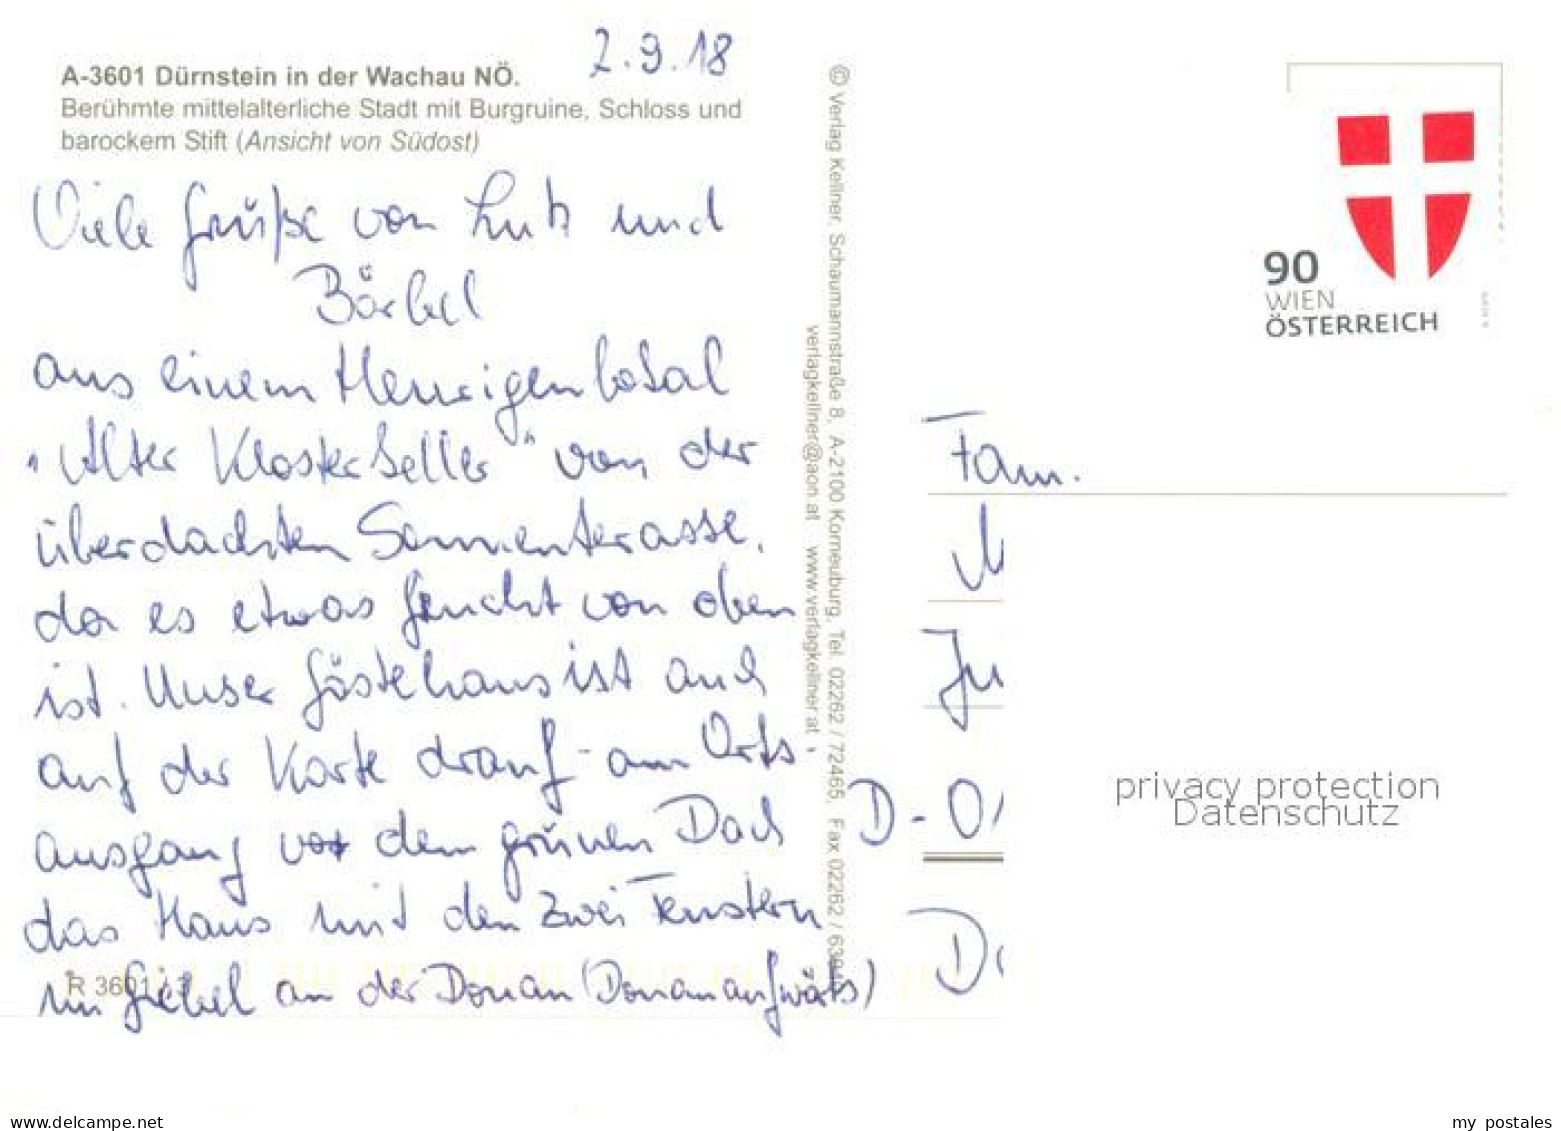 2.9.18
A-3601 Dürnstein in der Wachau NÖ.
Berühmte mittelalterliche Stadt mit Burgruine, Schloss und
barockem Stift (Ansicht von Südost)
Viele Grüße von Lutz und
Bärbel
aus einem Heurigenlokal
"Alter Klosterkeller" von der
überdachten Sonnenterasse,
da es etwas feucht von oben
ist. Unser Gästehaus ist auch
auf der Karte drauf - am Orts-
ausgang vor dem grünen Dach
das Haus mit den zwei Fenstern
im Giebel an der Donau (Donauaufwärts)
R 3601/3
© Verlag Kellner, Schaumannstraße 8, A-2100 Korneuburg, Tel. 02262 / 72465, Fax 02262 /
verlagkellner@aon.at www.verlagkellner.at
90
WIEN
ÖSTERREICH
Fam.
M
Ju
D-01
D
privacy protection
Datenschutz
www.delcampe.net
my_postales